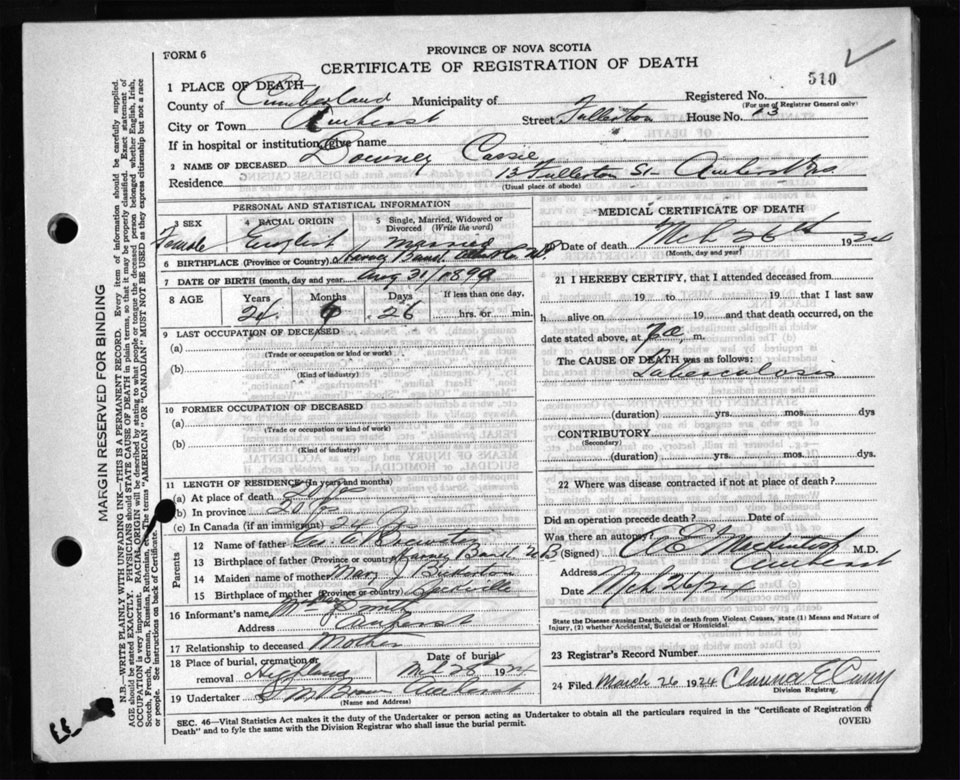 FORM 6
PROVINCE OF NOVA SCOTIA
CERTIFICATE OF REGISTRATION OF DEATH
510
1 PLACE OF DEATH
County of Cumberland Municipality of Registered No.
(For use of Registrar General only)
City or Town Amherst Street Fullerton House No. 13
If in hospital or institution, give name
2 NAME OF DECEASED Downey Cassie
Residence 13 Fullerton St. Amherst N.S.
(Usual place of abode)
PERSONAL AND STATISTICAL INFORMATION
3 SEX Female
4 RACIAL ORIGIN English
5 Single, Married, Widowed or Divorced (Write the word) Married
6 BIRTHPLACE (Province or Country)
7 DATE OF BIRTH (month, day and year) Aug 31/1899
8 AGE Years Months Days If less than one day,
24 6 26 hrs. or min.
9 LAST OCCUPATION OF DECEASED
(a)
(Trade or occupation or kind or work)
(b)
(Kind of industry)
10 FORMER OCCUPATION OF DECEASED
(a)
(Trade or occupation or kind of work)
(b)
(Kind of industry)
11 LENGTH OF RESIDENCE (In years and months)
(a) At place of death
(b) In province 20
(c) In Canada (if an immigrant) 24
Parents
12 Name of father Brewster
13 Birthplace of father (Province or Country)
14 Maiden name of mother Mary J
15 Birthplace of mother (Province or Country)
16 Informant's name
Address Amherst
17 Relationship to deceased Mother
18 Place of burial, cremation or removal
Date of burial Mch 28th 1924
19 Undertaker Brown Amherst
(Name and Address)
MEDICAL CERTIFICATE OF DEATH
20 Date of death Mch 26th 1924
(Month, day and year)
21 I HEREBY CERTIFY, that I attended deceased from
19 to 19 that I last saw
h alive on 19 and that death occurred, on the
date stated above, at m.
The CAUSE OF DEATH was as follows:
Tuberculosis
(duration) yrs. mos. dys
CONTRIBUTORY
(Secondary)
(duration) yrs. mos. dys.
22 Where was disease contracted if not at place of death?
Did an operation precede death? Date of
Was there an autopsy?
(Signed) M.D.
Address Amherst
Date
State the Disease causing Death, or in death from Violent Causes, state (1) Means and Nature of
Injury, (2) whether Accidental, Suicidal or Homicidal.
23 Registrar's Record Number
24 Filed March 26 1924 Clarence E
Division Registrar
SEC. 46—Vital Statistics Act makes it the duty of the Undertaker or person acting as Undertaker to obtain all the particulars required in the "Certificate of Registration of
Death" and to fyle the same with the Division Registrar who shall issue the burial permit. (OVER)
MARGIN RESERVED FOR BINDING
N.B.—WRITE PLAINLY WITH UNFADING INK—THIS IS A PERMANENT RECORD. Every item of information should be carefully supplied.
AGE should be stated EXACTLY. PHYSICIANS should STATE CAUSE OF DEATH in plain terms, so that it may be properly classified. Exact statement of
OCCUPATION is very important. RACIAL ORIGIN will be described by stating to what people or tongue the deceased person belonged whether English, Irish,
Scotch, French, German, Russian, Ruthenian, etc. The terms "AMERICAN" OR "CANADIAN" MUST NOT BE USED as they express citizenship but not a race
or people. See instructions on back of Certificate.